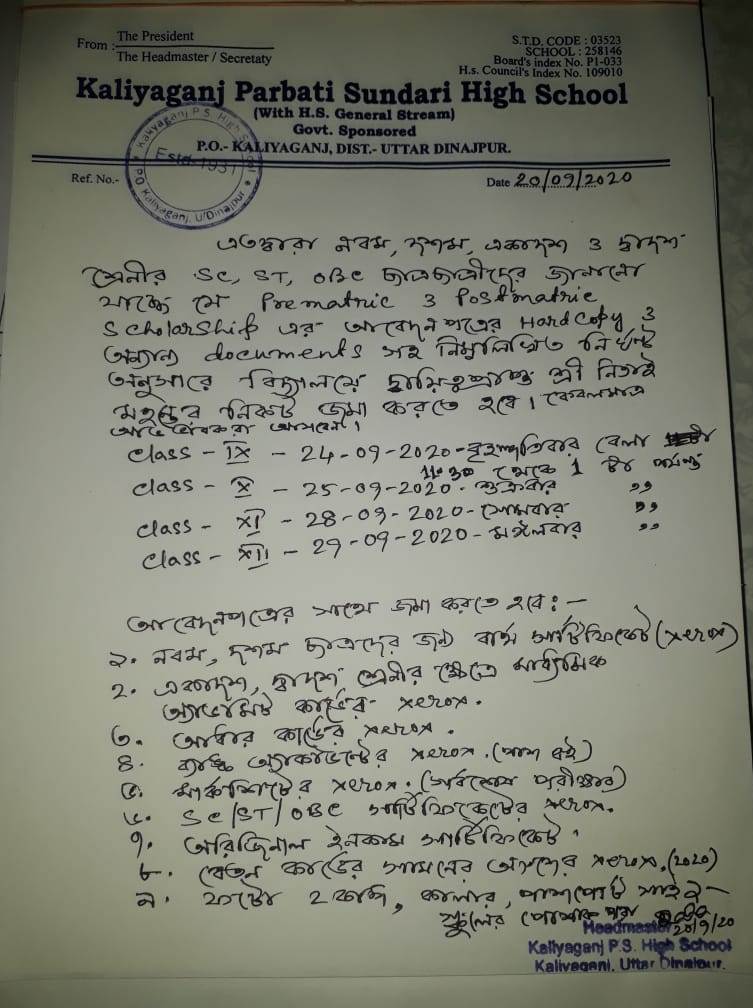 From :
The President
The Headmaster / Secretaty
S.T.D. CODE : 03523
SCHOOL : 258146
Board's index No. P1-033
H.s. Council's Index No. 109010
Kaliyaganj Parbati Sundari High School
(With H.S. General Stream)
Govt. Sponsored
P.O.- KALIYAGANJ, DIST.- UTTAR DINAJPUR.
Kaliyaganj P.S. High School
Estd-1931
P.O. Kaliyaganj, U/Dinajpur
Ref. No.-
Date 20/09/2020
এতদ্বারা নবম, দশম, একাদশ ও দ্বাদশ
শ্রেনীর SC, ST, OBC ছাত্রছাত্রীদের জানানো
যাচ্ছে যে Prematric ও Postmatric
Scholarship এর আবেদন পত্রের Hard Copy ও
অন্যান্য documents সহ নিম্নলিখিত নির্ঘন্ট
অনুসারে বিদ্যালয়ে দায়িত্বপ্রাপ্ত শ্রী নিতাই
মহন্তের নিকট জমা করতে হবে। কেবলমাত্র
অভিভাবকরা আসবেন।
Class - IX - 24-09-2020 - বৃহস্পতিবার বেলা
11.30 থেকে 1 টা পর্যন্ত
Class - X - 25-09-2020 - শুক্রবার ,,
Class - XI - 28-09-2020 - সোমবার ,,
Class - XII - 29-09-2020 - মঙ্গলবার ,,
আবেদনপত্রের সাথে জমা করতে হবে :-
১. নবম, দশম ছাত্রদের জন্য বার্থ সার্টিফিকেট (xerox)
২. একাদশ, দ্বাদশ শ্রেনীর ক্ষেত্রে মাধ্যমিক
অ্যাডমিট কার্ডের xerox.
৩. আধার কার্ডের xerox.
৪. ব্যাঙ্ক অ্যাকাউন্টের xerox. (পাশ বই)
৫. মার্কশিটের xerox. (সর্বশেষ পরীক্ষার)
৬. SC/ST/OBC সার্টিফিকেটের xerox.
৭. অরিজিনাল ইনকাম সার্টিফিকেট.
৮. বেতন কার্ডের সামনের অংশের xerox. (2020)
৯. ফটো ২ কপি, কালার, পাশপোর্ট সাইজ -
স্কুলের পোশাক পরা
20/9/20
Headmaster
Kaliyaganj P.S. High School
Kaliyaganj, Uttar Dinajpur.